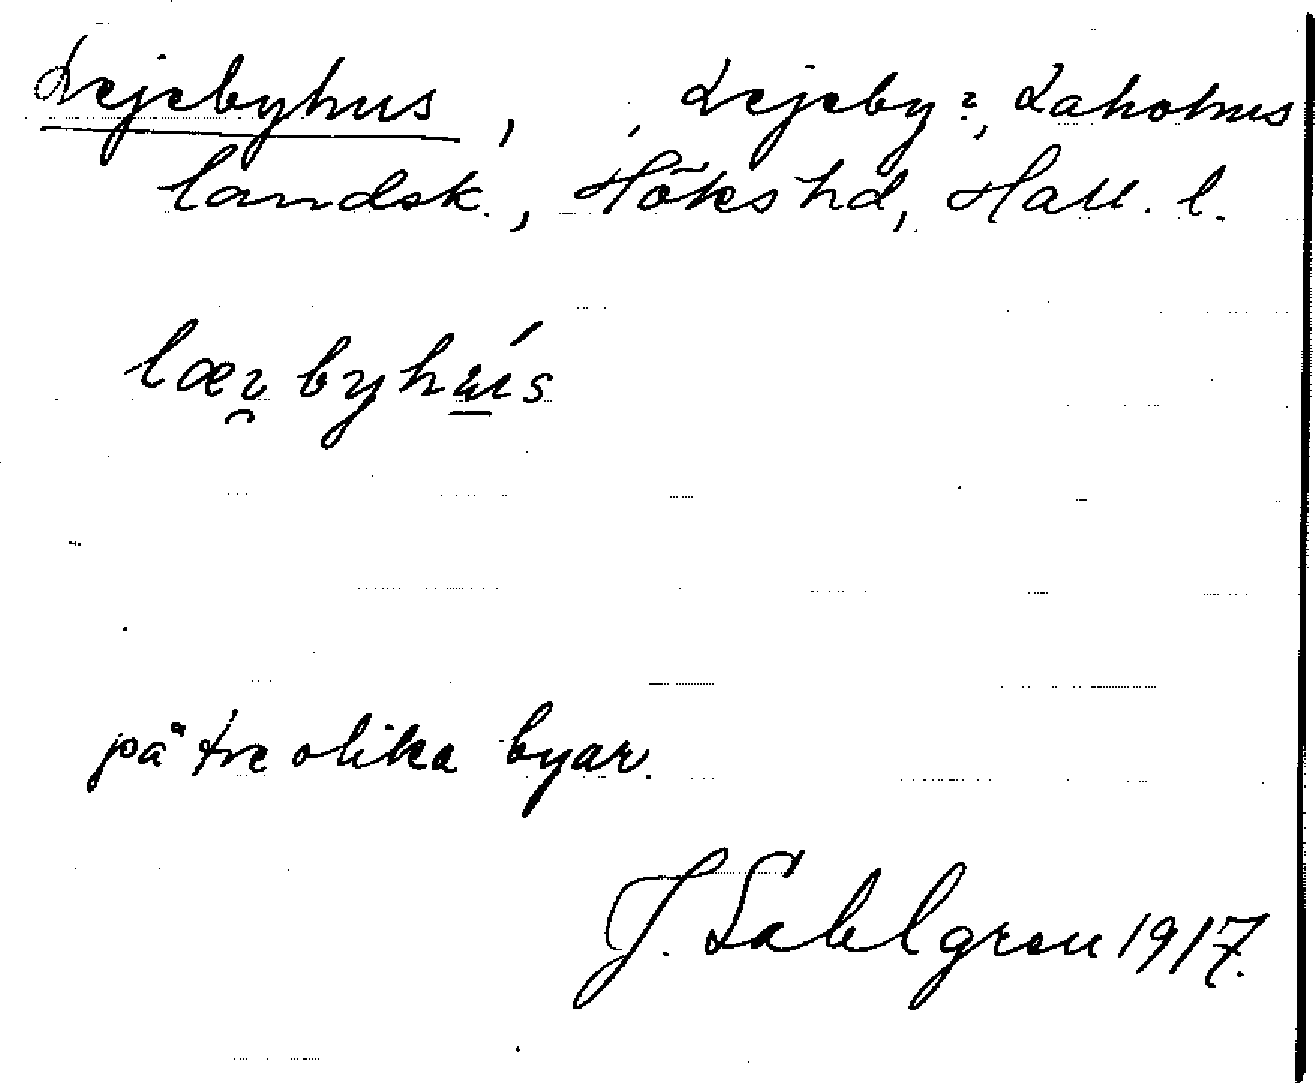 Lejebyhus, Lejeby?, Laholms
landsk., Höks hd, Hall. l.
læi̯byhú̲s
på tre olika byar.
J. Sahlgren 1917.